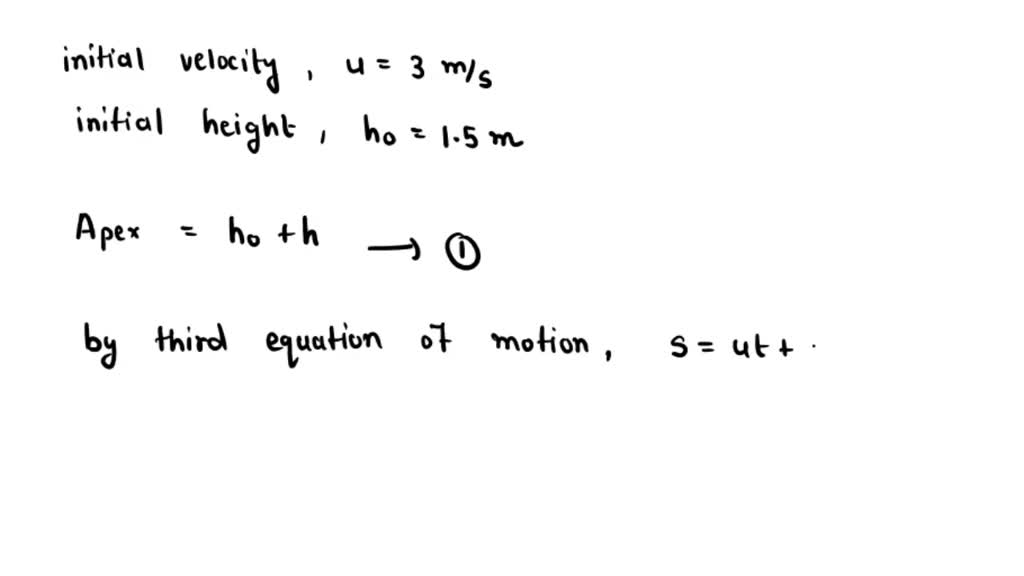 initial velocity, u = 3 m/s
initial height, h₀ = 1.5 m
Apex = h₀ + h → ①
by third equation of motion, s = ut +